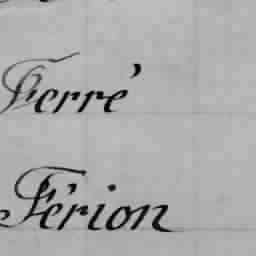 Ferré
Férion